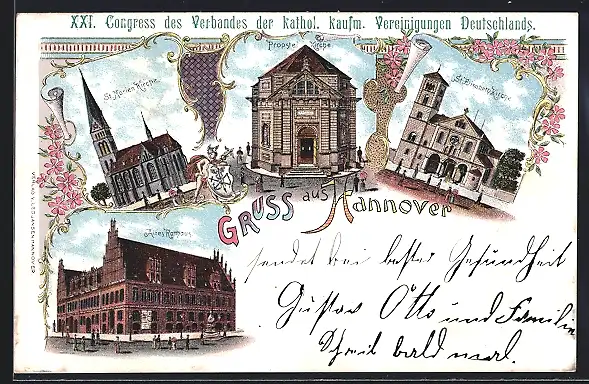 XXI. Congress des Verbandes der kathol. kaufm. Vereinigungen Deutschlands.
Propstei Kirche
St. Marien Kirche
St. Elisabeth Kirche
GRUSS aus Hannover
Altes Rathaus
sendet bei bester Gesundheit
Gustav Otto und Familie
Schreib bald mal.